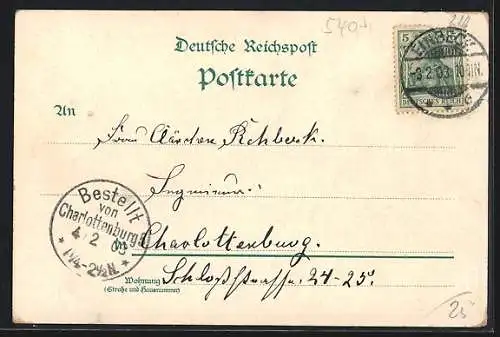 540.-
210
Deutsche Reichspost
Postkarte
5
DEUTSCHES REICH
EINBECK
-3.2.03. 10-11N.
c
An
Rehberk.
Ingenieur.
Bestellt
von
Charlottenburg
4 2 03
1¼-2½N.
in Charlottenburg.
Wohnung
(Straße und Hausnummer)
Schloßstrasse. 24-25.
25